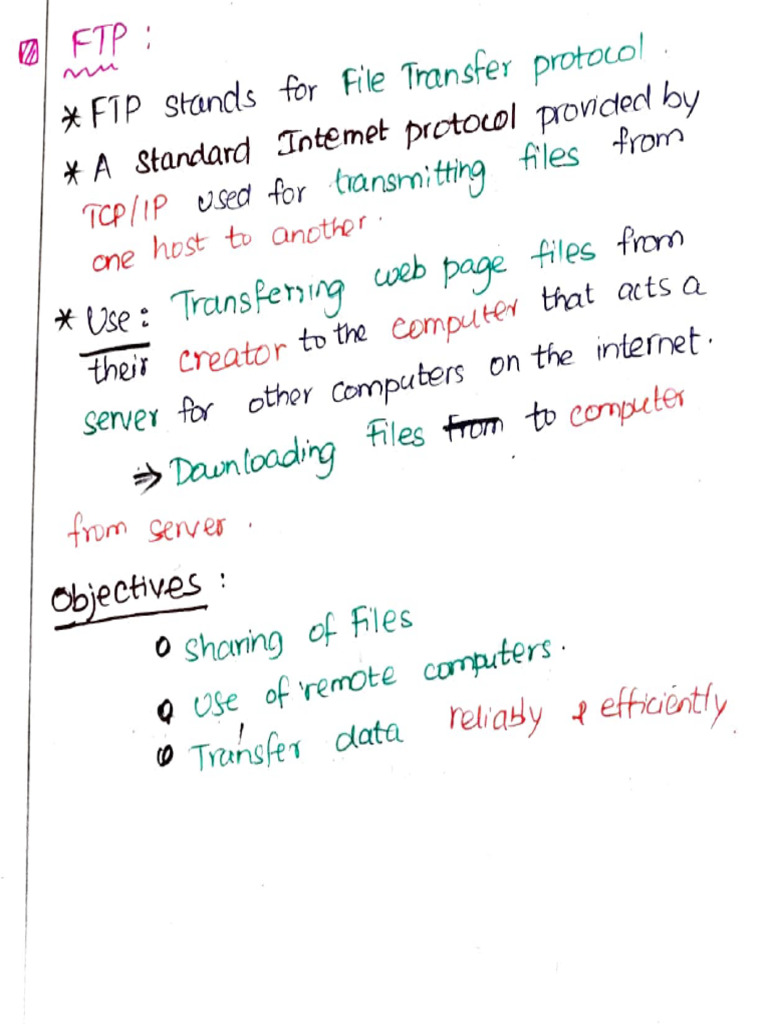 FTP :
* FTP stands for File Transfer protocol.
* A standard Internet protocol provided by
TCP/IP used for transmitting files from
one host to another.
* Use : Transferring web page files from
their creator to the computer that acts a
server for other computers on the internet.
⇒ Downloading files from to computer
from server.
Objectives :
o sharing of Files
o use of remote computers.
o Transfer data reliably & efficiently